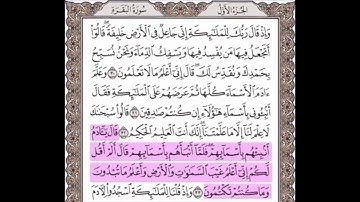 الجزء الأول سورة البقرة
وَإِذْ قَالَ رَبُّكَ لِلْمَلَٰٓئِكَةِ إِنِّى جَاعِلٌ فِى ٱلْأَرْضِ خَلِيفَةً ۖ قَالُوٓا۟
أَتَجْعَلُ فِيهَا مَن يُفْسِدُ فِيهَا وَيَسْفِكُ ٱلدِّمَآءَ وَنَحْنُ نُسَبِّحُ
بِحَمْدِكَ وَنُقَدِّسُ لَكَ ۖ قَالَ إِنِّىٓ أَعْلَمُ مَا لَا تَعْلَمُونَ ٣٠ وَعَلَّمَ
ءَادَمَ ٱلْأَسْمَآءَ كُلَّهَا ثُمَّ عَرَضَهُمْ عَلَى ٱلْمَلَٰٓئِكَةِ فَقَالَ
أَنۢبِـُٔونِى بِأَسْمَآءِ هَٰٓؤُلَآءِ إِن كُنتُمْ صَٰدِقِينَ ٣١ قَالُوا۟ سُبْحَٰنَكَ
لَا عِلْمَ لَنَآ إِلَّا مَا عَلَّمْتَنَآ ۖ إِنَّكَ أَنتَ ٱلْعَلِيمُ ٱلْحَكِيمُ ٣٢ قَالَ يَٰٓـَٔادَمُ
أَنۢبِئْهُم بِأَسْمَآئِهِمْ ۖ فَلَمَّآ أَنۢبَأَهُم بِأَسْمَآئِهِمْ قَالَ أَلَمْ أَقُل
لَّكُمْ إِنِّىٓ أَعْلَمُ غَيْبَ ٱلسَّمَٰوَٰتِ وَٱلْأَرْضِ وَأَعْلَمُ مَا تُبْدُونَ
وَمَا كُنتُمْ تَكْتُمُونَ ٣٣ وَإِذْ قُلْنَا لِلْمَلَٰٓئِكَةِ ٱسْجُدُوا۟ لِءَادَمَ